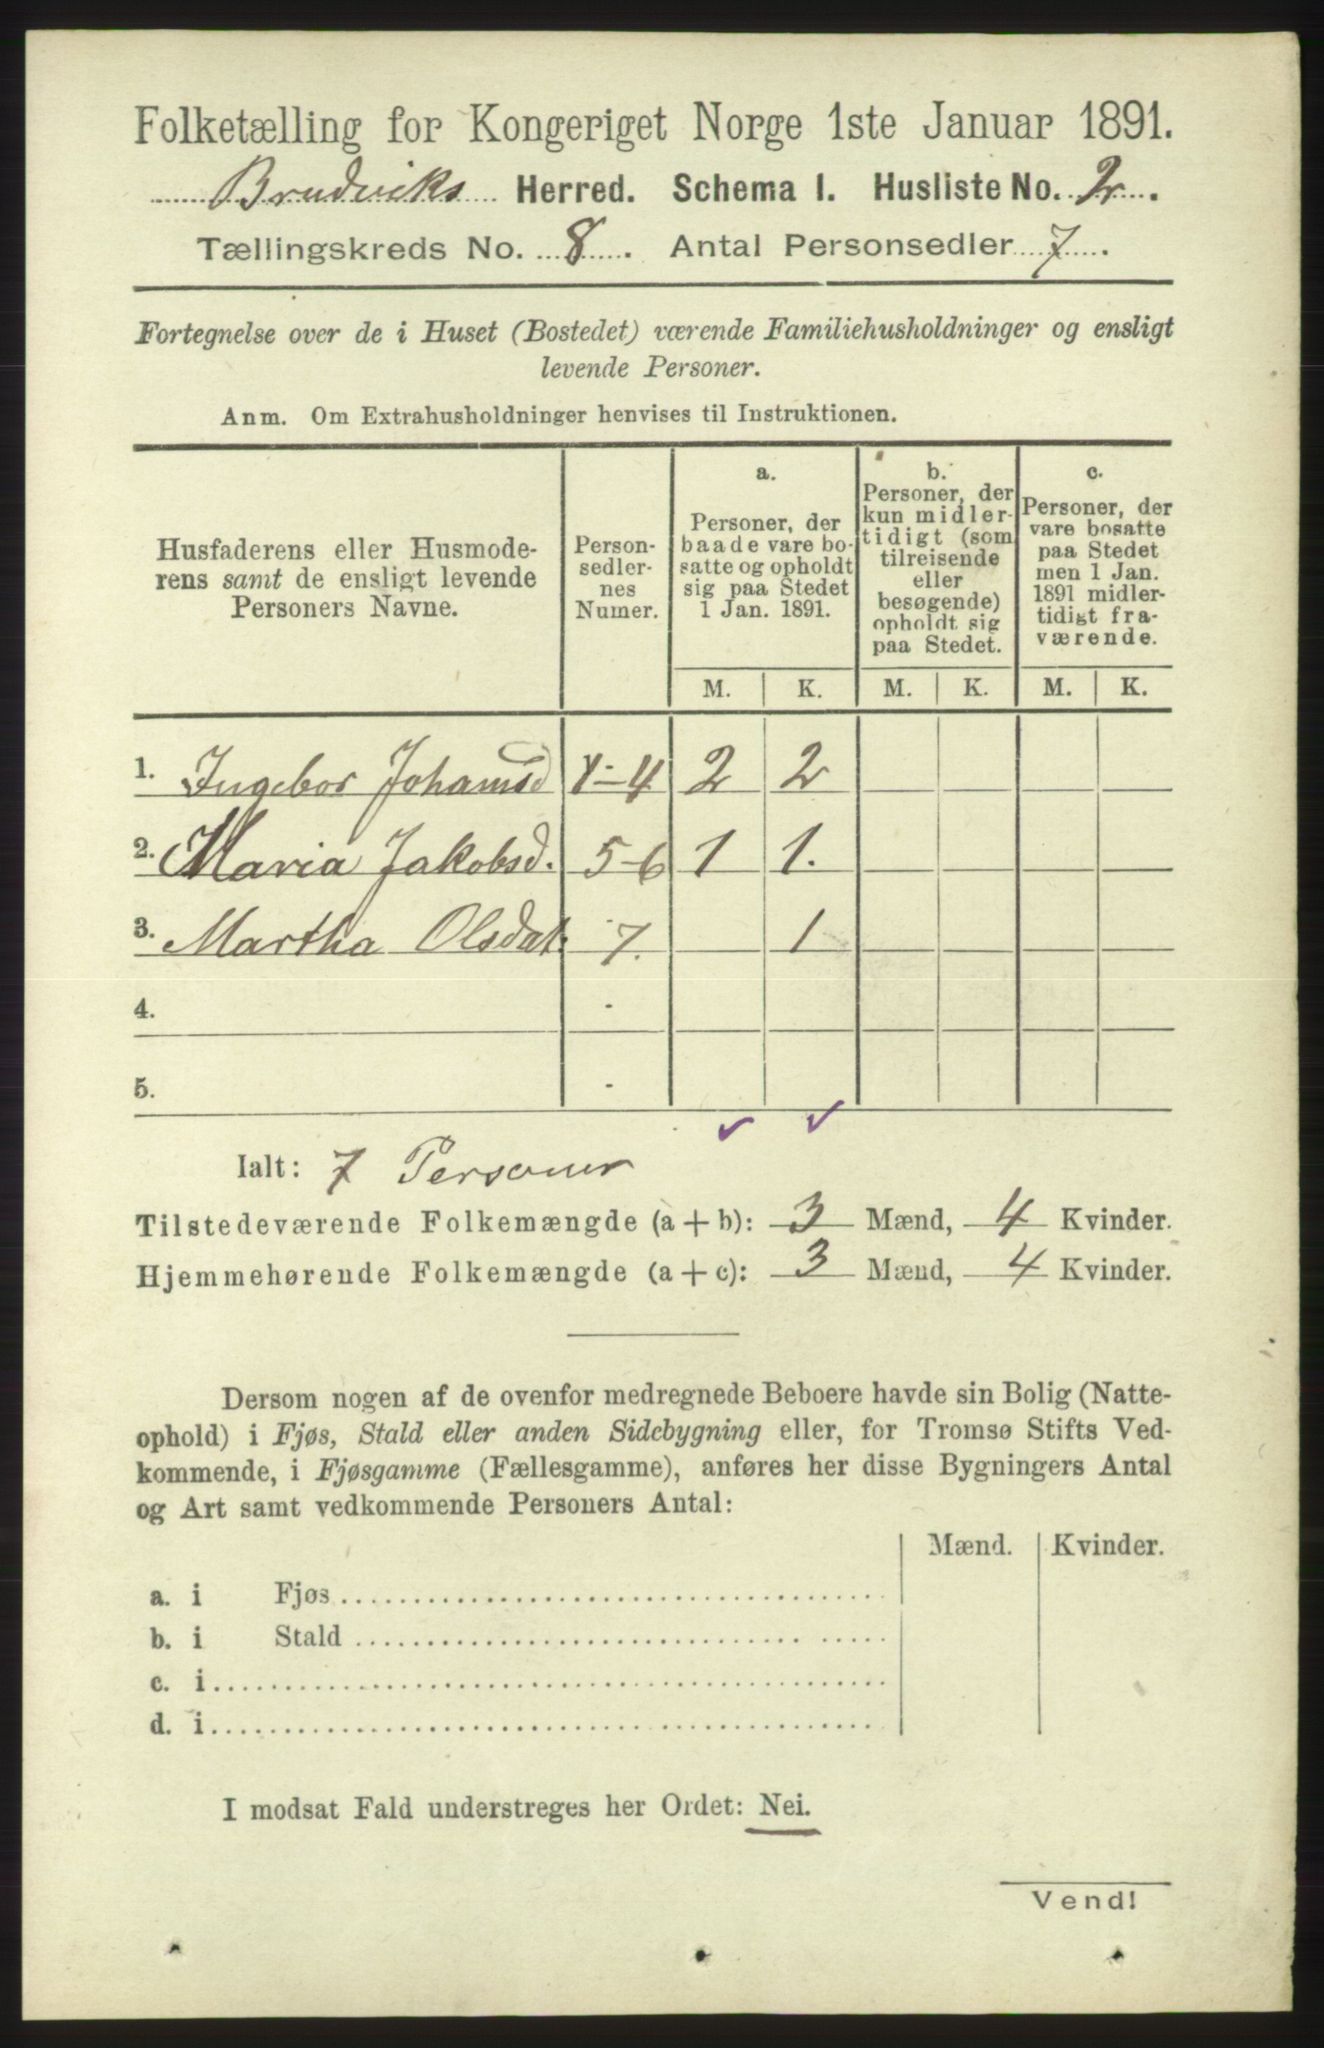 Folketælling for Kongeriget Norge 1ste Januar 1891.
Bruviks Herred. Schema I. Husliste No. 2.
Tællingskreds No. 8. Antal Personsedler 7.
Fortegnelse over de i Huset (Bostedet) værende Familiehusholdninger og ensligt
levende Personer.
Anm. Om Extrahusholdninger henvises til Instruktionen.
Husfaderens eller Husmode-
rens samt de ensligt levende
Personers Navne.
Person-
sedler-
nes
Numer.
a.
Personer, der
baade vare bo-
satte og opholdt
sig paa Stedet
1 Jan. 1891.
b.
Personer, der
kun midler-
tidigt (som
tilreisende
eller
besøgende)
opholdt sig
paa Stedet.
c.
Personer, der
vare bosatte
paa Stedet
men 1 Jan.
1891 midler-
tidigt fra-
værende.
M. K. M. K. M. K.
1. Ingebor Johannsd 1-4 2 2
2. Maria Jakobsd. 5-6 1 1.
3. Martha Olsdat. 7. 1
4. -
5. -
Ialt: 7 Personer
Tilstedeværende Folkemængde (a + b): 3 Mænd, 4 Kvinder.
Hjemmehørende Folkemængde (a + c): 3 Mænd, 4 Kvinder.
Dersom nogen af de ovenfor medregnede Beboere havde sin Bolig (Natte-
ophold) i Fjøs, Stald eller anden Sidebygning eller, for Tromsø Stifts Ved-
kommende, i Fjøsgamme (Fællesgamme), anføres her disse Bygningers Antal
og Art samt vedkommende Personers Antal:
Mænd. Kvinder.
a. i Fjøs
b. i Stald
c. i
d. i
I modsat Fald understreges her Ordet: Nei.
Vend!